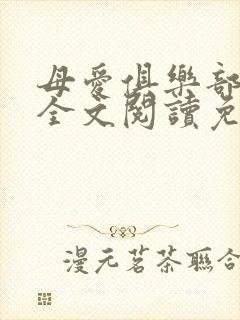 母愛俱樂部
全文閱讀免
漫元茗茶聯合